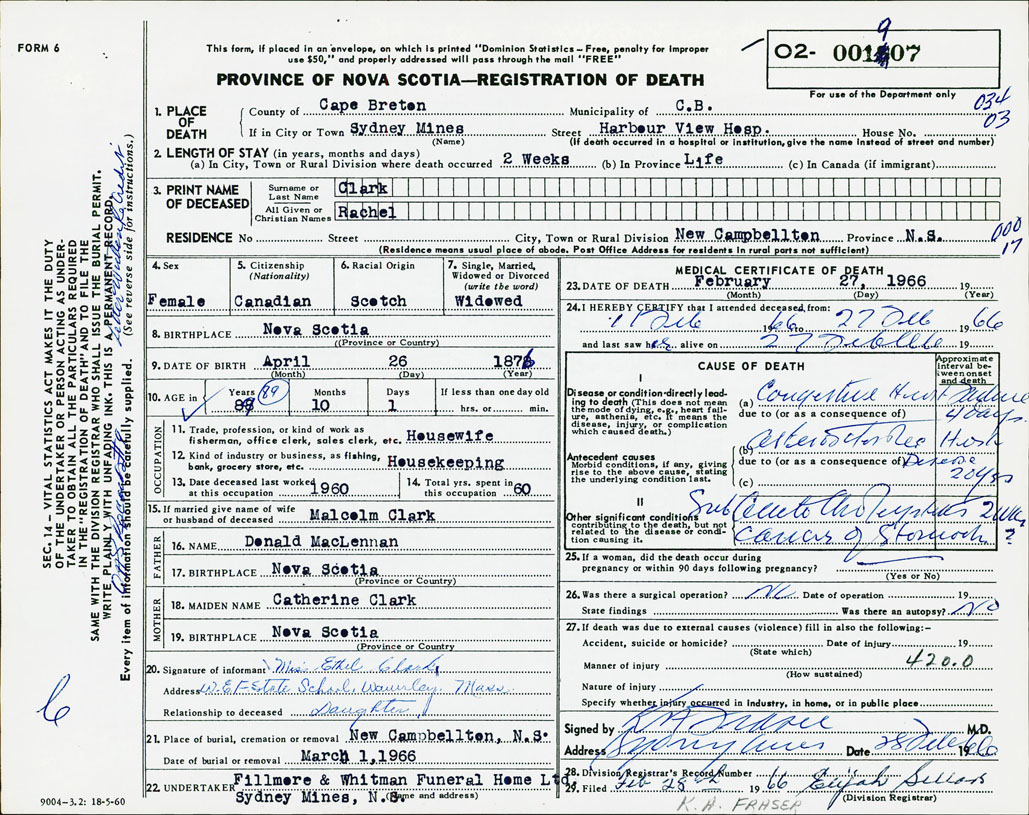 FORM 6
This form, if placed in an envelope, on which is printed "Dominion Statistics – Free, penalty for improper
use $50," and properly addressed will pass through the mail "FREE"
PROVINCE OF NOVA SCOTIA—REGISTRATION OF DEATH
9
02- 001 07
For use of the Department only
034
03
1. PLACE OF DEATH
County of Cape Breton Municipality of C.B.
If in City or Town Sydney Mines Street Harbour View Hosp. House No.
(Name) (If death occurred in a hospital or institution, give the name instead of street and number)
2. LENGTH OF STAY (in years, months and days)
(a) In City, Town or Rural Division where death occurred 2 Weeks (b) In Province Life (c) In Canada (if immigrant)
3. PRINT NAME OF DECEASED
Surname or Last Name Clark
All Given or Christian Names Rachel
RESIDENCE No Street City, Town or Rural Division New Campbellton Province N.S.
(Residence means usual place of abode. Post Office Address for residents in rural parts not sufficient)
000
17
4. Sex Female
5. Citizenship (Nationality) Canadian
6. Racial Origin Scotch
7. Single, Married, Widowed or Divorced (write the word) Widowed
8. BIRTHPLACE Nova Scotia
(Province or Country)
9. DATE OF BIRTH April 26 1876
(Month) (Day) (Year)
10. AGE in Years 88 89 Months 10 Days 1 If less than one day old hrs. or min.
OCCUPATION
11. Trade, profession, or kind of work as fisherman, office clerk, sales clerk, etc. Housewife
12. Kind of industry or business, as fishing, bank, grocery store, etc. Housekeeping
13. Date deceased last worked at this occupation 1960
14. Total yrs. spent in this occupation 60
15. If married give name of wife or husband of deceased Malcolm Clark
FATHER
16. NAME Donald MacLennan
17. BIRTHPLACE Nova Scotia
(Province or Country)
MOTHER
18. MAIDEN NAME Catherine Clark
19. BIRTHPLACE Nova Scotia
(Province or Country)
20. Signature of informant Miss Ethel Clark
Address W.E.F. State School, Waverley, Mass.
Relationship to deceased Daughter
21. Place of burial, cremation or removal New Campbellton, N.S.
Date of burial or removal March 1,1966
22. UNDERTAKER Fillmore & Whitman Funeral Home Ltd.
Sydney Mines, N.S. (Name and address)
MEDICAL CERTIFICATE OF DEATH
23. DATE OF DEATH February 27, 1966 19
(Month) (Day) (Year)
24. I HEREBY CERTIFY that I attended deceased from:
Feb 1966 to 27 Feb 1966
and last saw her alive on 27 Feb 19
CAUSE OF DEATH
Approximate interval between onset and death
I
Disease or condition directly leading to death (This does not mean the mode of dying, e.g., heart failure, asthenia, etc. It means the disease, injury, or complication which caused death.)
(a) Congestive Heart Failure
due to (or as a consequence of) 4 days
Antecedent causes
Morbid conditions, if any, giving rise to the above cause, stating the underlying condition last.
(b) Heart
due to (or as a consequence of) Disease
(c) 20 yrs
II
Other significant conditions contributing to the death, but not related to the disease or condition causing it.
Sub acute 2 wks
Cancer of Stomach ?
25. If a woman, did the death occur during pregnancy or within 90 days following pregnancy?
(Yes or No)
26. Was there a surgical operation? No Date of operation 19
State findings Was there an autopsy? No
27. If death was due to external causes (violence) fill in also the following:–
Accident, suicide or homicide? Date of injury 19
(State which)
Manner of injury 420.0
(How sustained)
Nature of injury
Specify whether injury occurred in industry, in home, or in public place
Signed by K A Fraser M.D.
Address Sydney Mines Date 28 Feb 1966
28. Division Registrar's Record Number
29. Filed Feb 28th 1966 Elijah
(Division Registrar)
K. A. FRASER
SEC. 14 – VITAL STATISTICS ACT MAKES IT THE DUTY
OF THE UNDERTAKER OR PERSON ACTING AS UNDER-
TAKER TO OBTAIN ALL THE PARTICULARS REQUIRED
IN THE "REGISTRATION OF DEATH" AND TO FILE THE
SAME WITH THE DIVISION REGISTRAR WHO SHALL ISSUE THE BURIAL PERMIT.
WRITE PLAINLY WITH UNFADING INK. THIS IS A PERMANENT RECORD.
Every item of information should be carefully supplied. (See reverse side for instructions.)
6
9004-3.2: 18-5-60